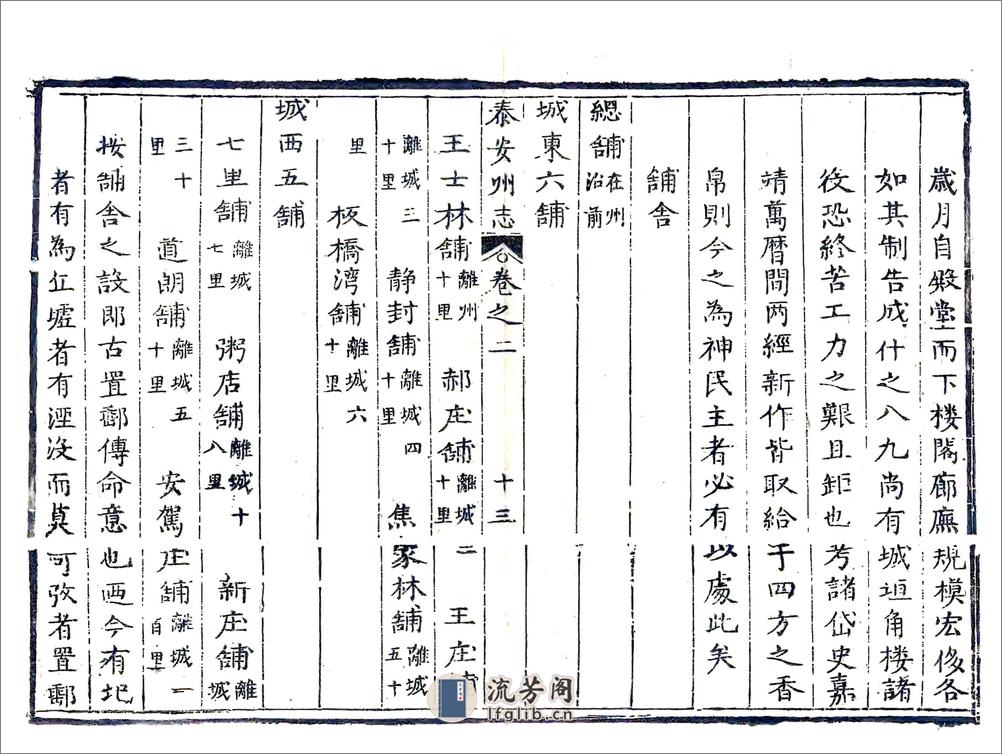 歲月自殿堂而下楼閣廊廡規模宏侈各
如其制告成什之八九尚有城垣角楼諸
役恐終苦工力之艱且鉅也考諸岱史嘉
靖萬曆間两經新作皆取給于四方之香
帛則今之為神民主者必有以處此矣
舖舍
總舖在州治前
城東六舖
泰安州志 卷之二 十三
王士林舖離州十里 郝庄舖離城二十里 王庄舖
離城三十里 静封舖離城四十里 焦家林舖離城五十
里 板橋湾舖離城六十里
城西五舖
七里舖離城七里 粥店舖離城十八里 新庄舖離城
三十里 道朗舖離城五十里 安駕庄舖離城一百里
按舖舍之設即古置郵傳命意也迺今有圮
者有為丘墟者有湮没而莫可攷者置郵
流芳阁
lfglib.cn